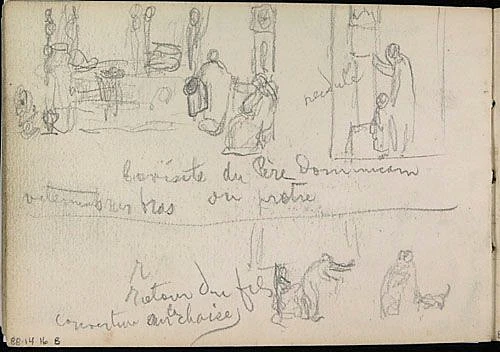 nedule
La visite du Père Dominicain
vetements sur bras ou pretre
Retour du fils
couverture sur la chaise
88.14 16 B